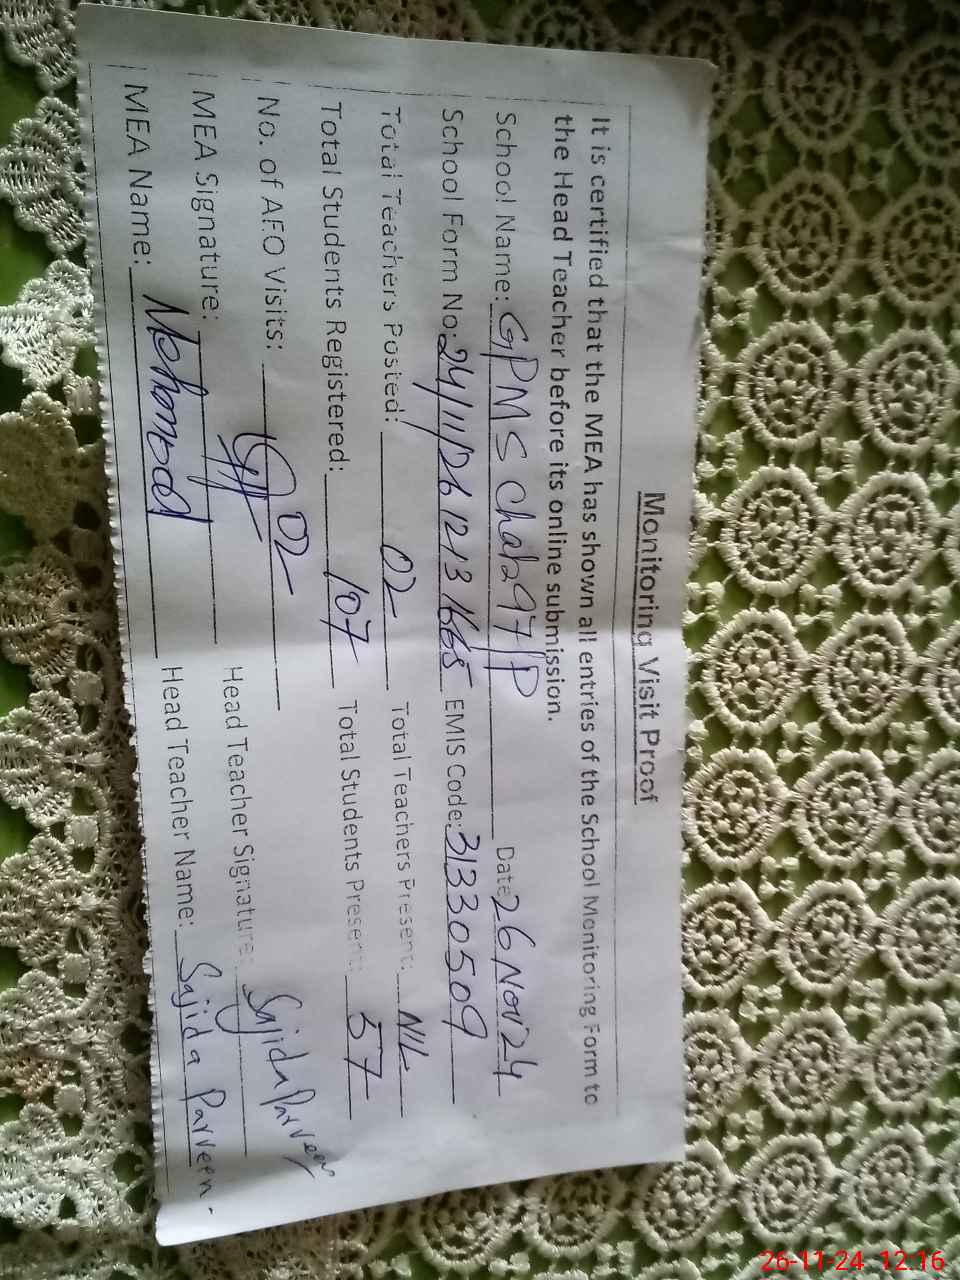 Monitoring Visit Proof
It is certified that the MEA has shown all entries of the School Monitoring Form to
the Head Teacher before its online submission.
School Name: GPMS Chak 97/P Date 26 Nov 24
School Form No: 24/11/26 1213 1665 EMIS Code: 31330509
Total Teachers Posted: 02 Total Teachers Present: NIL
Total Students Registered: 107 Total Students Present: 57
No. of AEO Visits: 02
MEA Signature: Head Teacher Signature: Sajida Parveen
MEA Name: Head Teacher Name: Sajida Parveen.
26-11-24 12:16